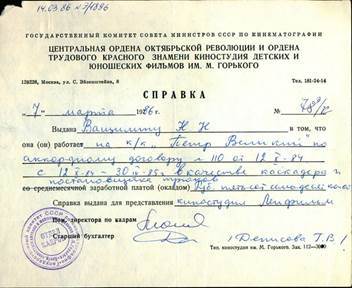 14.03.86 № 7/1886
ГОСУДАРСТВЕННЫЙ КОМИТЕТ СОВЕТА МИНИСТРОВ СССР ПО КИНЕМАТОГРАФИИ
ЦЕНТРАЛЬНАЯ ОРДЕНА ОКТЯБРЬСКОЙ РЕВОЛЮЦИИ И ОРДЕНА
ТРУДОВОГО КРАСНОГО ЗНАМЕНИ КИНОСТУДИЯ ДЕТСКИХ И
ЮНОШЕСКИХ ФИЛЬМОВ ИМ. М. ГОРЬКОГО
Москва, ул. С. Эйзенштейна, 8
Тел. 181-24-14
СПРАВКА
"7" марта 1986 г.
№
Выдана Ващилину Н Н в том, что
он (он) работает на к/к. "Петр Великий" по
аккордному договору № 110 от 12 X - 84
с 12 X - 84 - 30 85 г. в качестве каскадера,
постановщика трюков
со среднемесячной заработной платой (окладом) руб.
Справка выдана для представления киностудия Ленфильм
Пом. директора по кадрам
Старший бухгалтер
(Денисова Т. В)
Тип. киностудии им. М. Горького. Зак.